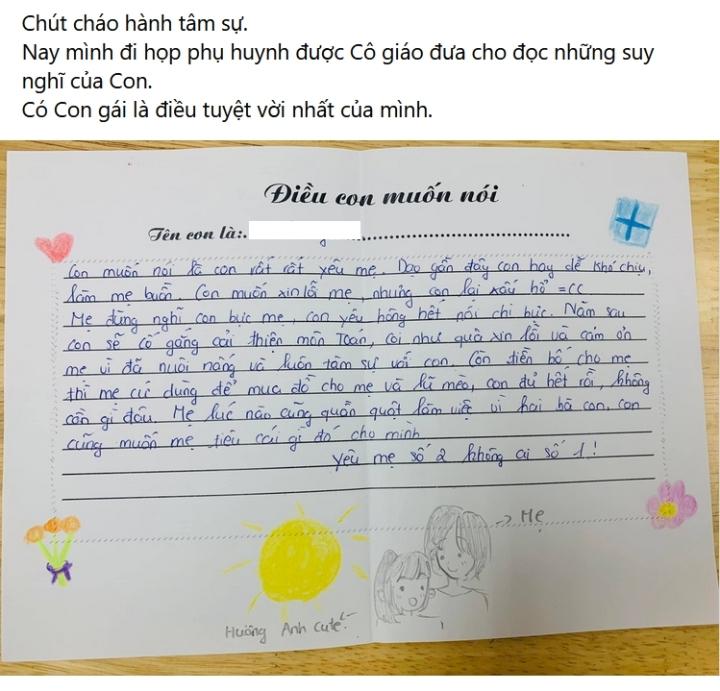 Chút cháo hành tâm sự.
Nay mình đi họp phụ huynh được Cô giáo đưa cho đọc những suy
nghĩ của Con.
Có Con gái là điều tuyệt vời nhất của mình.
Điều con muốn nói
Tên con là:
Con muốn nói là con rất rất yêu mẹ. Dạo gần đây con hay dễ khó chịu,
làm mẹ buồn. Con muốn xin lỗi mẹ, nhưng con lại xấu hổ =CC
Mẹ đừng nghĩ con bực mẹ, con yêu hông hết nói chi bực. Năm sau
con sẽ cố gắng cải thiện môn Toán, coi như quà xin lỗi và cám ơn
mẹ vì đã nuôi nấng và luôn tâm sự với con. Còn tiền bố cho mẹ
thì mẹ cứ dùng để mua đồ cho mẹ và lũ mèo, con đủ hết rồi, không
cần gì đâu. Mẹ lúc nào cũng quần quật làm việc vì hai bà con, con
cũng muốn mẹ tiêu cái gì đó cho mình
Yêu mẹ số 2 không ai số 1!
-> Mẹ
Hương Anh cute